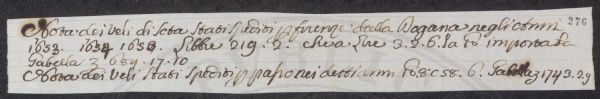 276
Nota dei Veli di seta stati spediti p firenze dalla Dogana negli anni
1653. 1654 1655. Libbre 219. 2. che a lire 3. 2. 6. la lb importa la
Gabella 3 684. 17. 10
Nota dei Veli stati spediti p passo nei detti anni lb 8c58. 6. Gabella 3 1743. 2. 9